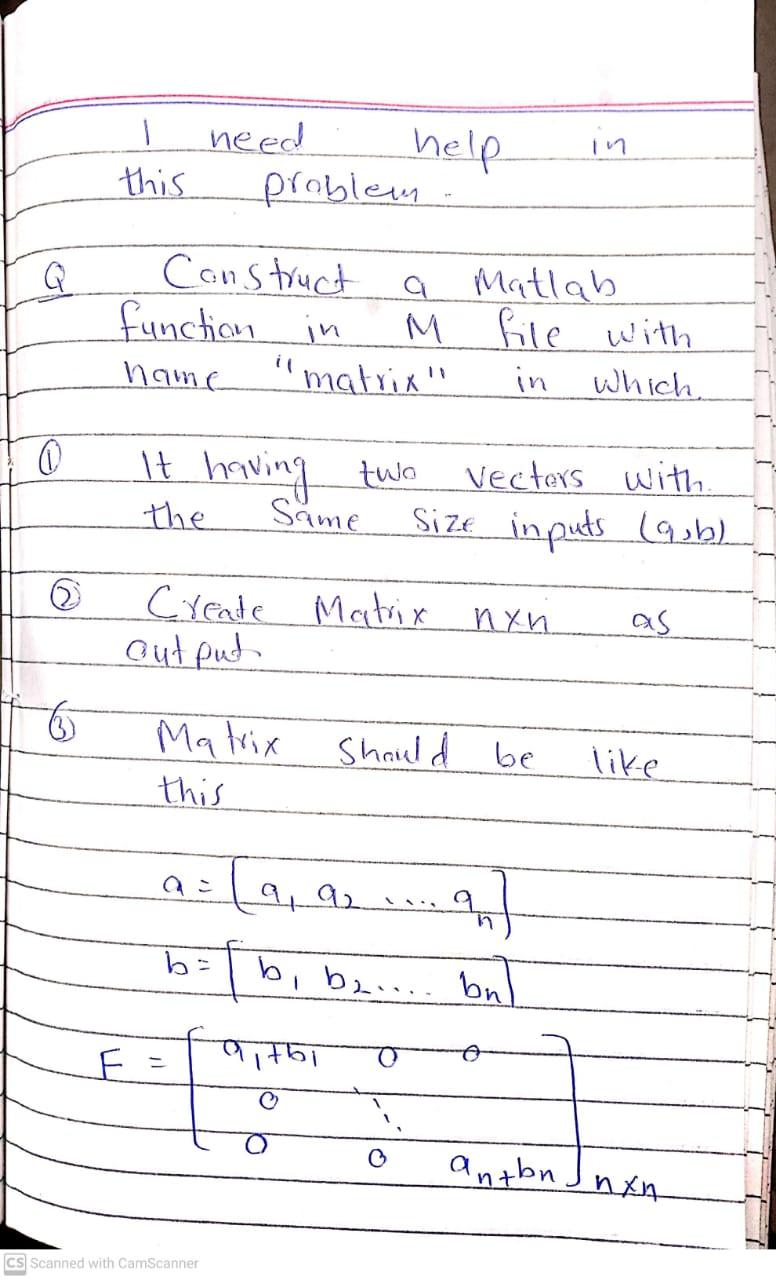 I need help in
this problem.
Q Construct a Matlab
function in M file with
name "matrix" in which.
① It having two vectors with
the same size inputs (a,b)
② Create Matrix nxn as
output
③ Matrix should be like
this
a = [a₁ a₂ .... aₙ]
b = [b₁ b₂.... bn]
E = [a₁+b₁ 0 0
0 ⋱
0 0 an+bn] nxn
CS Scanned with CamScanner